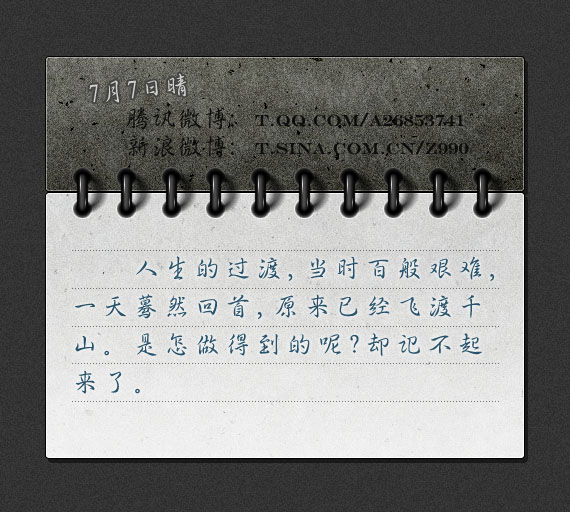 7月7日晴
腾讯微博: T.QQ.COM/A26853741
新浪微博: T.SINA.COM.CN/Z990
人生的过渡,当时百般艰难,
一天蓦然回首,原来已经飞渡千
山。是怎做得到的呢?却记不起
来了。